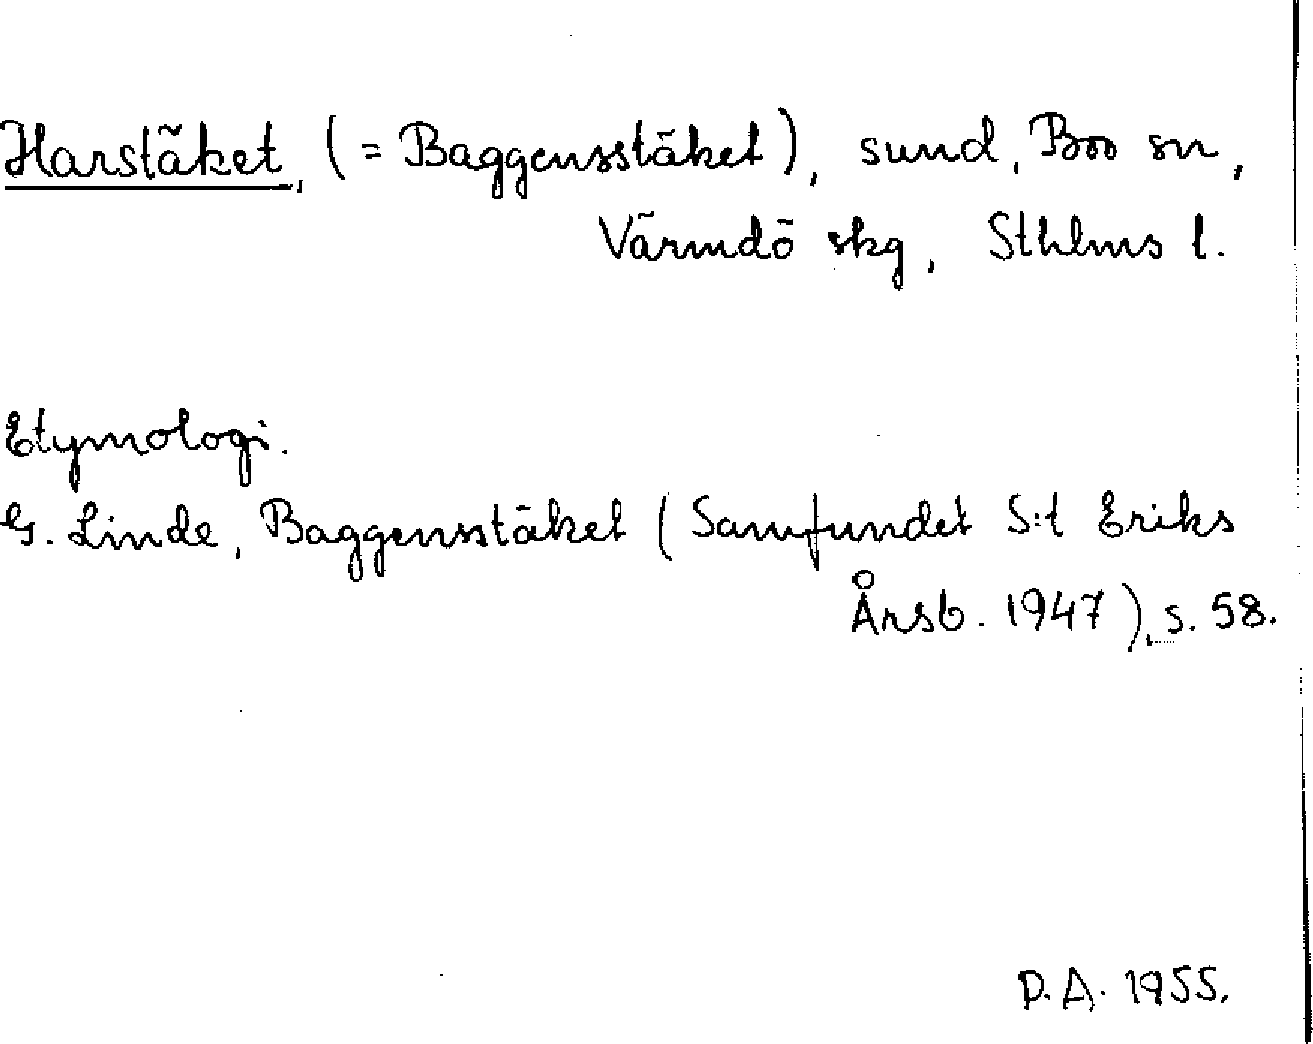 Harstäket, (= Baggensstäket), sund, Boo sn,
Värmdö skg, Sthlms l.
Etymologi.
G. Linde, Baggensstäket (Samfundet S:t Eriks
Årsb. 1947), s. 58.
D.A. 1955.